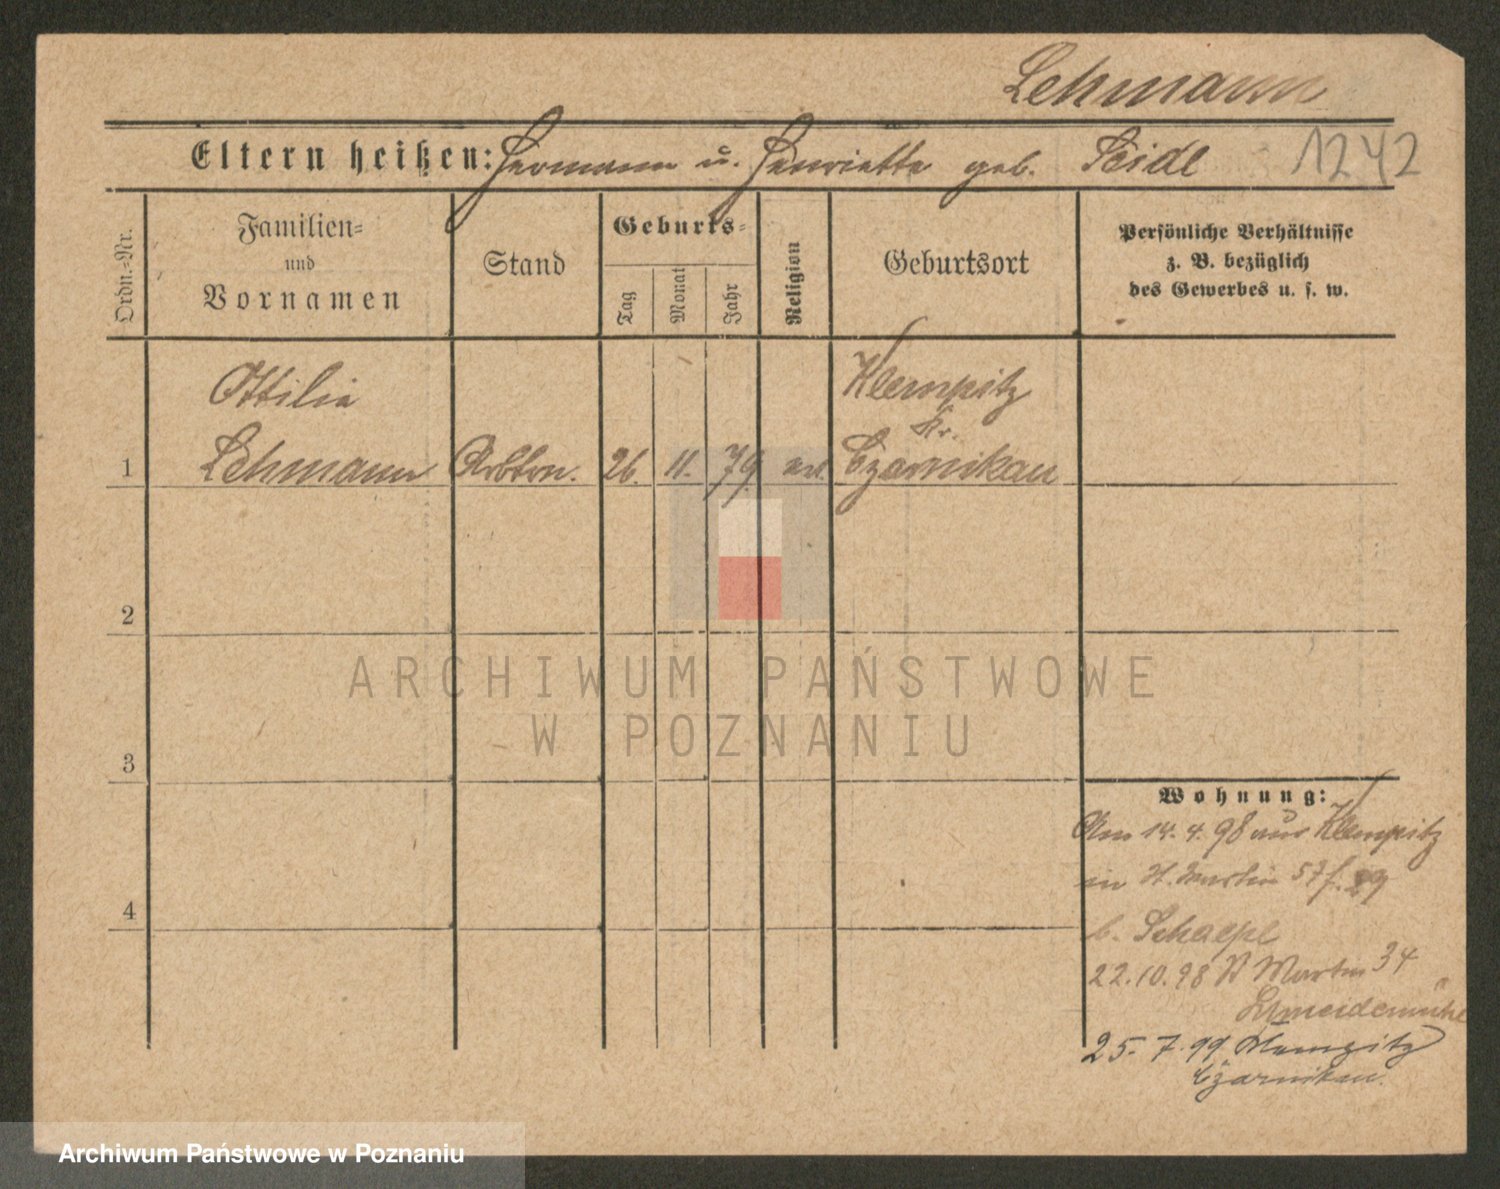 Lehmann
Eltern heißen: Hermann u. Henriette geb. Seidl 1242
Ordn.=Nr.
Familien=
und
Vornamen
Stand
Geburts=
Tag
Monat
Jahr
Religion
Geburtsort
Persönliche Verhältnisse
z. B. bezüglich
des Gewerbes u. s. w.
Ottilie
Klempitz
Kr.
1 Lehmann Arbtrn. 26. 11. 79 Czarnikau
2
3
4
ARCHIWUM PAŃSTWOWE
W POZNANIU
Wohnung:
Am 14.4.98 aus Klempitz
in St. Martin 57
b.
22.10.98 St Martin 34
Schneidemühl
25.7.99 Klempitz
Czarnikau.
Archiwum Państwowe w Poznaniu